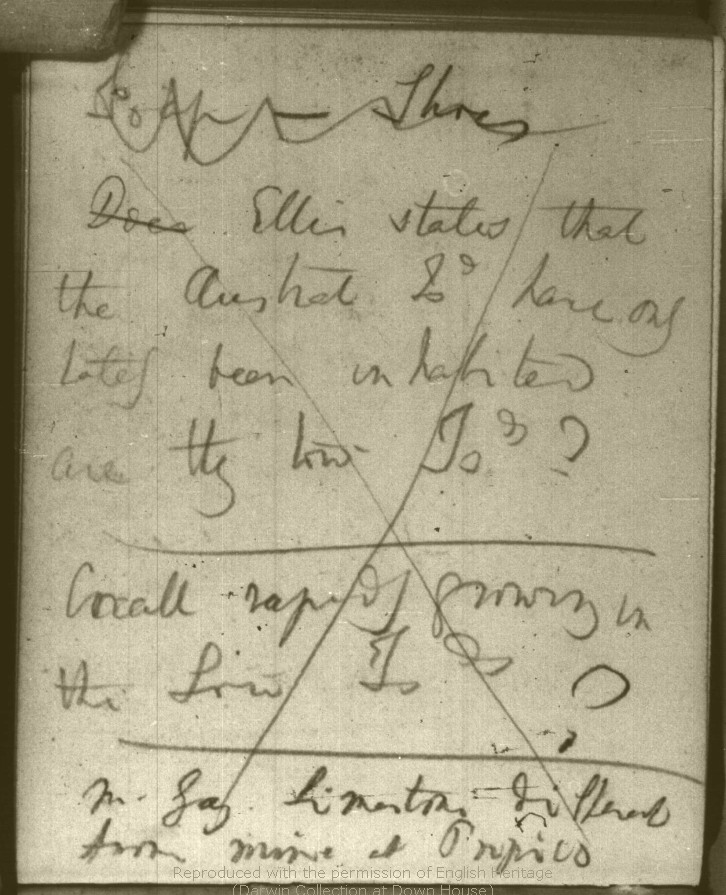 Soap — Shoes
Does Ellis states that
the Austral Isds have only
lately been inhabited
are they low Isds ?
Corall rapidly growing in
the Low Isds ?
M. Gay. Limestone different
from mine at
Reproduced with the permission of English Heritage
(Darwin Collection at Down House)